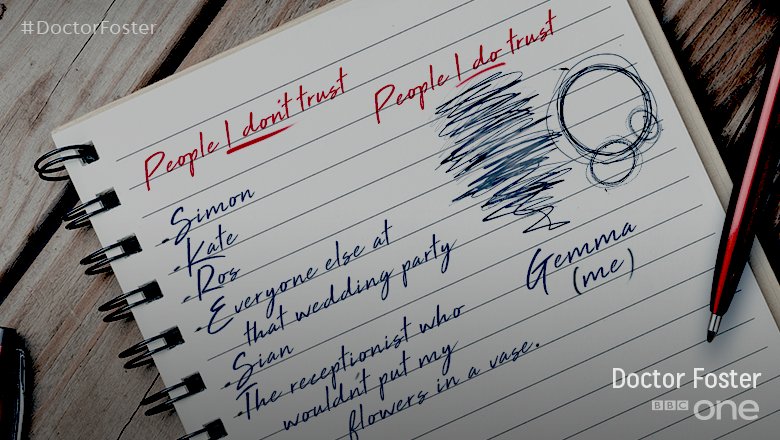 #DoctorFoster
People I don't trust
-Simon
-Kate
-Ros
-Everyone else at
that wedding party
-Sian
-The receptionist who
wouldn't put my
flowers in a vase.
People I do trust
Gemma
(me)
Doctor Foster
BBC one